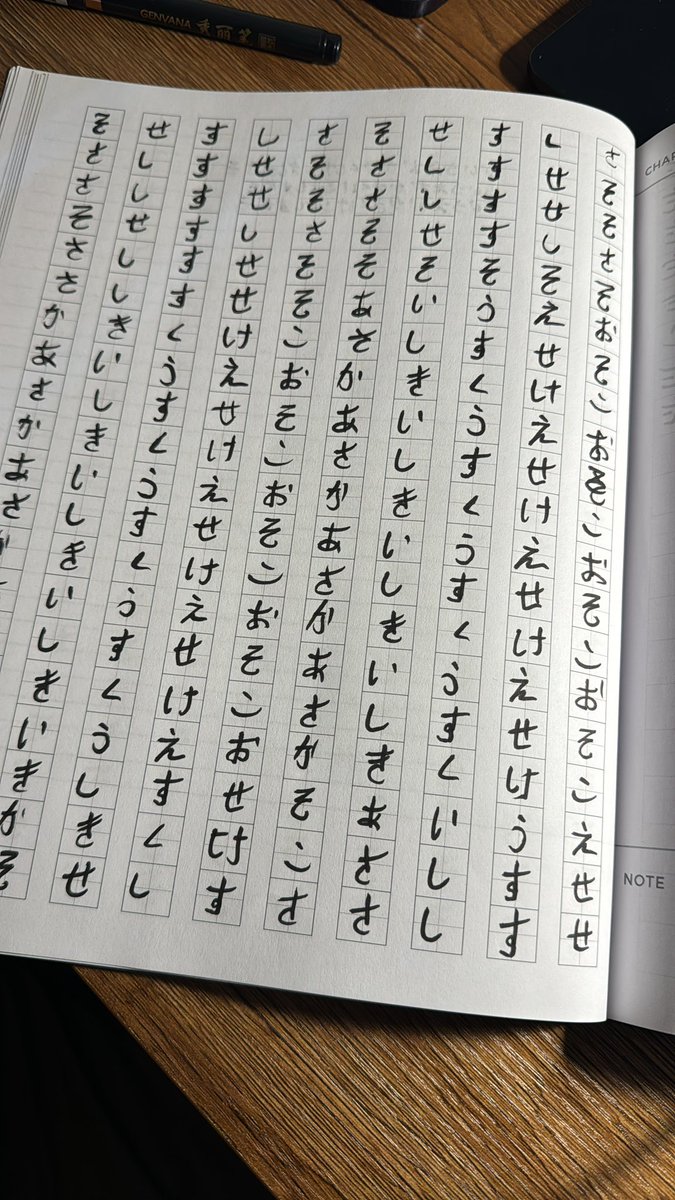 GENVANA 秀丽笔
さそそさそおそこおそこおそこおそこえせせ
しせせしそえせけえせけえせけえせけうすす
すすすすそうすくうすくうすくうすくいしし
せししせそいしきいしきいしきいしきあささ
そささそそあそかあさかあさかあさかそこさ
さそそさそそこおそこおそこおそこおせけす
しせせしせせけえせけえせけえせけえすくし
すすすすすすくうすくうすくうすくうしきせ
せししせししきいしきいしきいしきいきかそ
そささそささかあさかあさ
NOTE